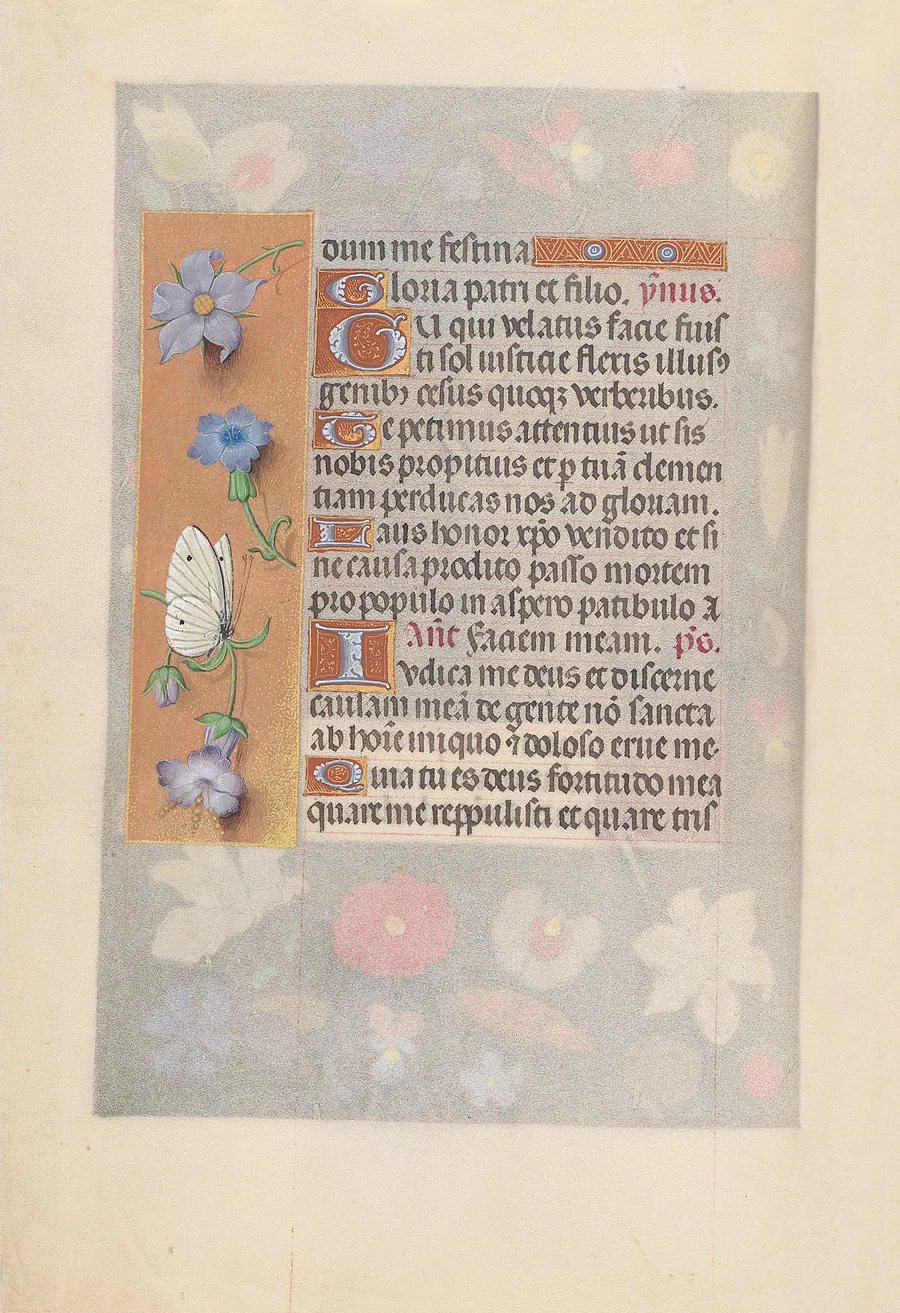 dum me festina
Gloria patri et filio. ẏmus.
GUi qui velatus facie fuis
ti sol iusticie flexis illusꝰ
genibꝫ cesus quoqꝫ verberibus.
Te petimus attentius ut sis
nobis propitius et ꝑ tuā clemen
tiam perducas nos ad gloriam.
Laus honor xp̄o vendito et si
ne causa prodito passo mortem
pro populo in aspero patibulo A
Añe Faciem meam. ps.
Iudica me deus et discerne
causam meā de gente nō sancta
ab hoīe iniquo ⁊ doloso erue me.
Quia tu es deus fortitudo mea
quare me reppulisti et quare tris